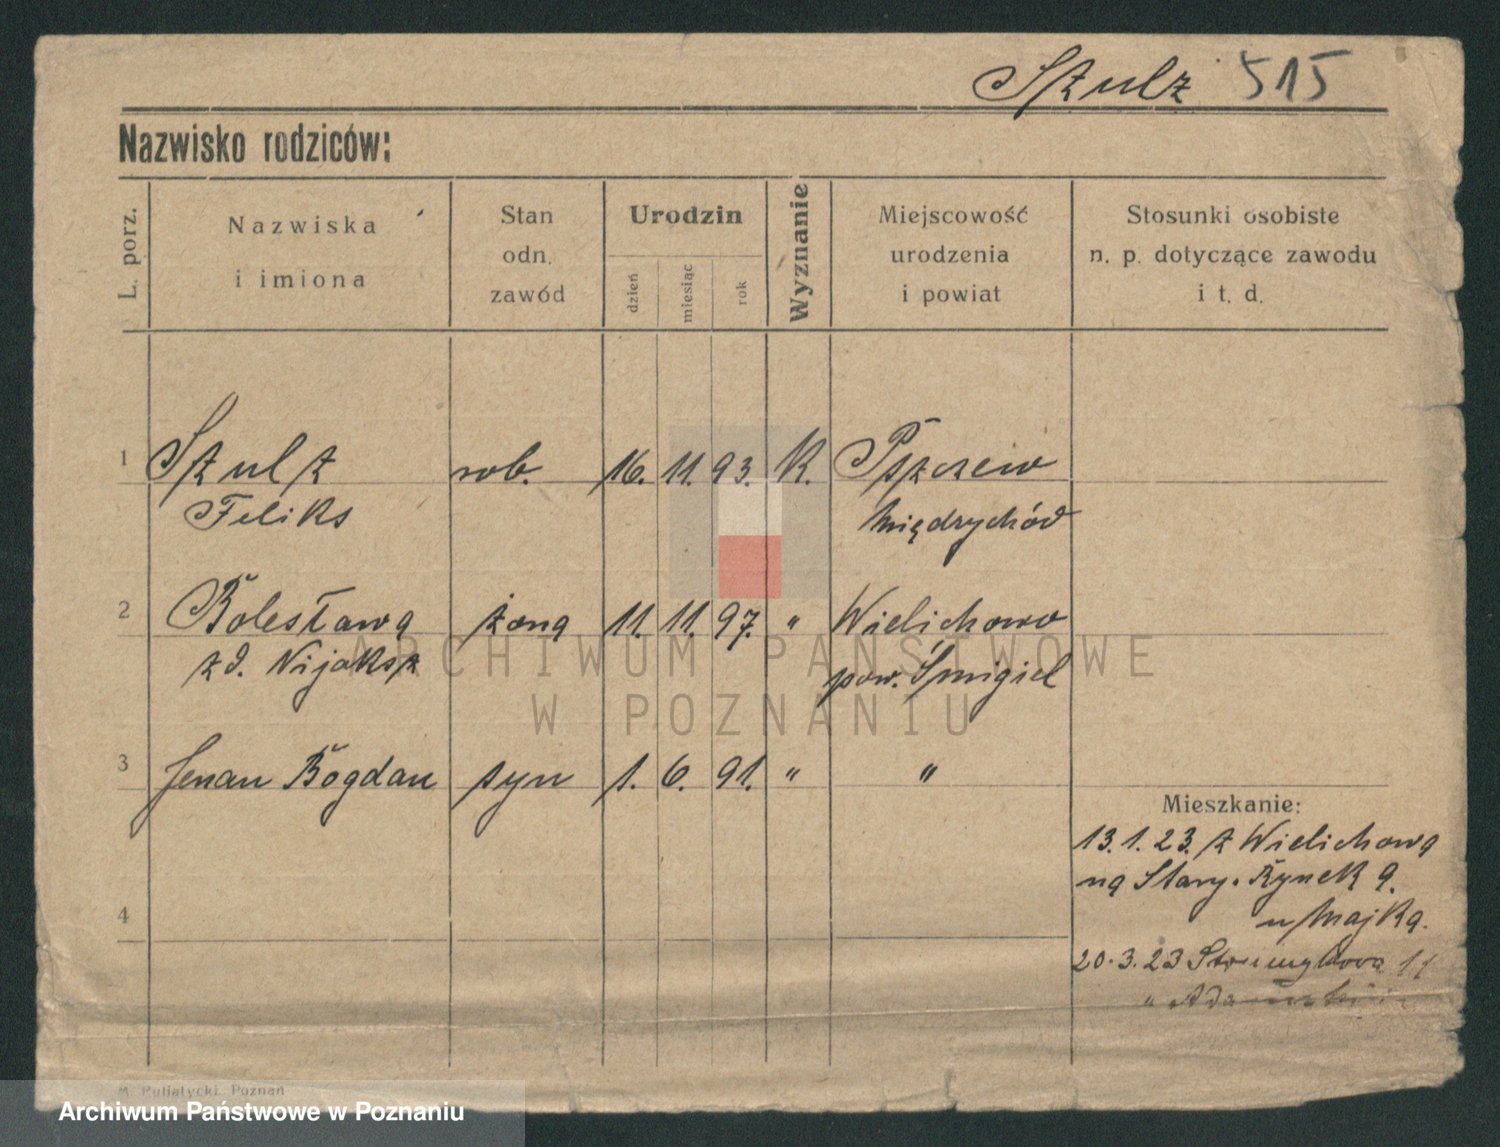 Szulz 515
Nazwisko rodziców:
L. porz.
Nazwiska
i imiona
Stan
odn.
zawód
Urodzin
dzień
miesiąc
rok
Wyznanie
Miejscowość
urodzenia
i powiat
Stosunki osobiste
n. p. dotyczące zawodu
i t. d.
1 Szulz rob. 16. 11. 93. K. Pszczew
Feliks Międzychód
2 Bolesława żona 11. 11. 97. " Wielichowo
zd. Nijaksz pow. Śmigiel
3 Zenan Bogdan syn 1. 6. 91. " "
Mieszkanie:
13.1.23. z Wielichowa
na Stary. Rynek 9.
u Majka.
4
20.3.23 11
"
M. Putiatycki, Poznań
ARCHIWUM PAŃSTWOWE
W POZNANIU
Archiwum Państwowe w Poznaniu